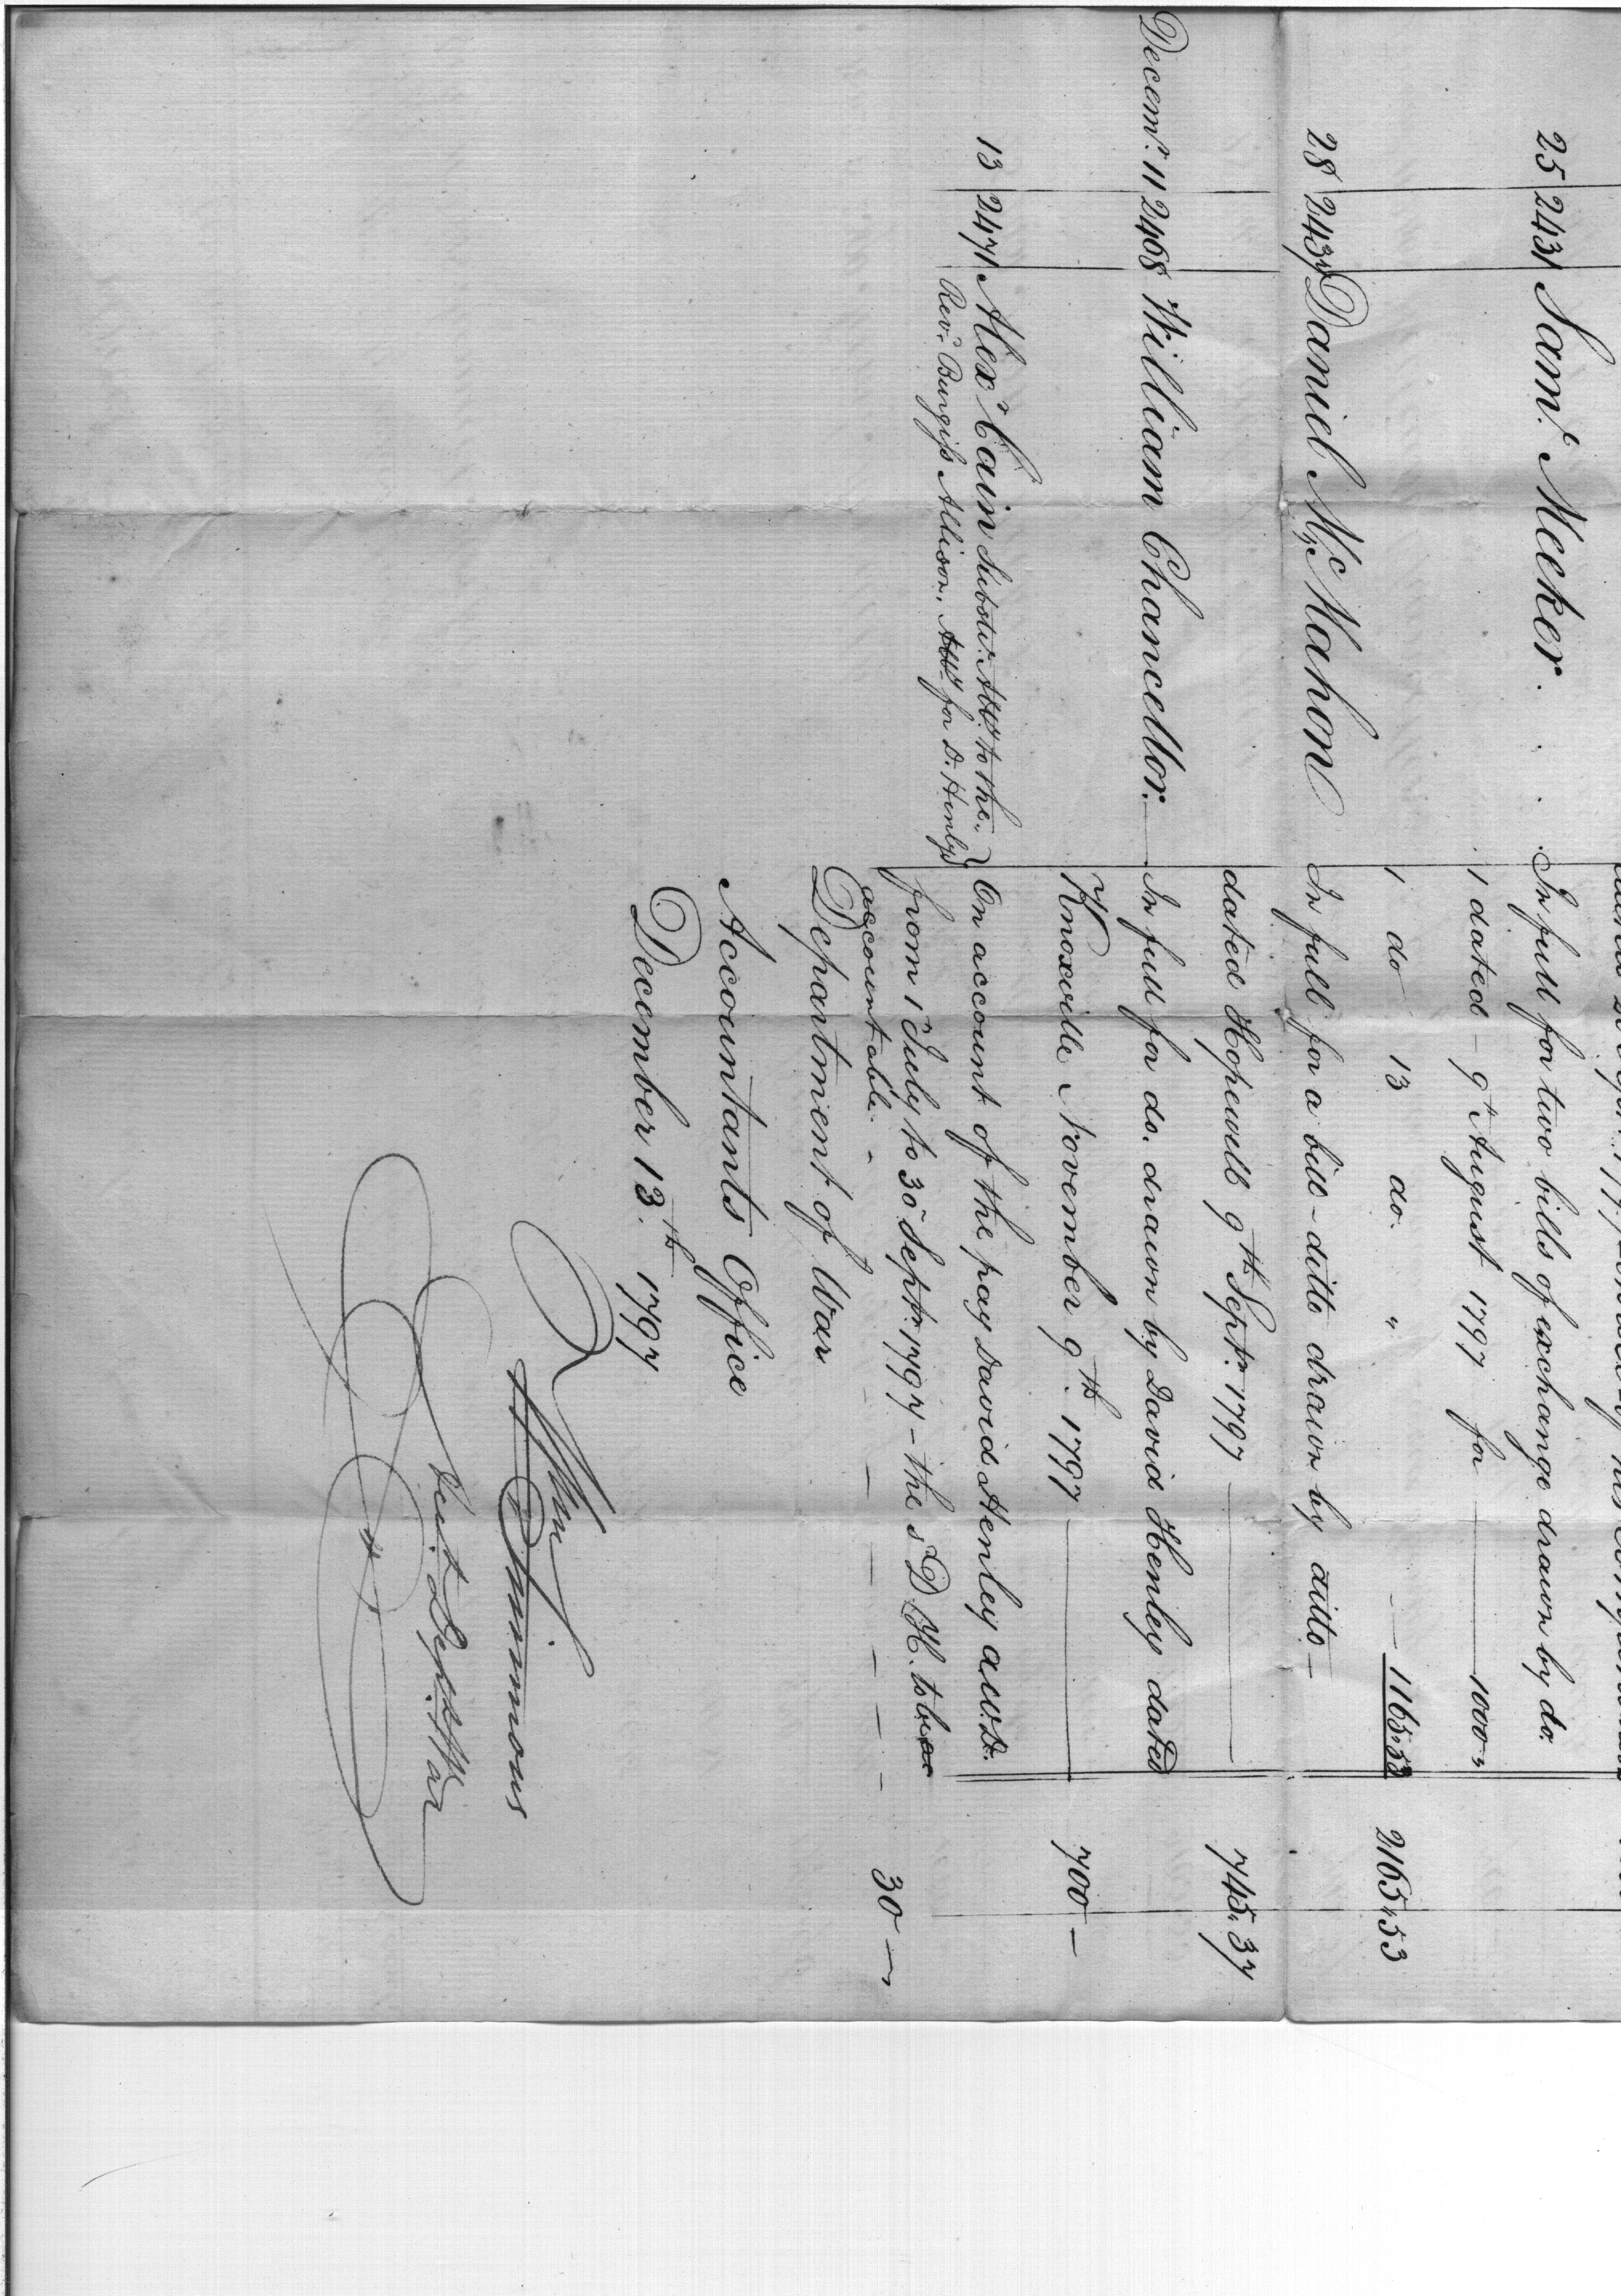 25 2431 Sam.l Meeker . . . In full for two bills of exchange drawn by do.
1 dated - 9th August 1797 for 1000"
1 do 13 do. " 1165.53 2165.53
28 2437 Daniel McMahon In full for a bill - ditto drawn by ditto -
dated Hopewell 9th Sept.r 1797 745.37
Decem.r 11 2468 William Chancellor. In full for do. drawn by David Henley dated
Knoxville November 9th. 1797 700 -
13 2471 Alex.r Cain Substi.t Atty to the On account of the pay David Henley a.w.D.
Rev.d Burgiss Allison, Atty for D. Henley from 1st July to 30 Sept.r 1797 - the s.d D H. to be
accountable - - - - - - 30 -
Department of War
Accountants Office
December 13.th 1797
Wm Simmons
Acct. Dept. War